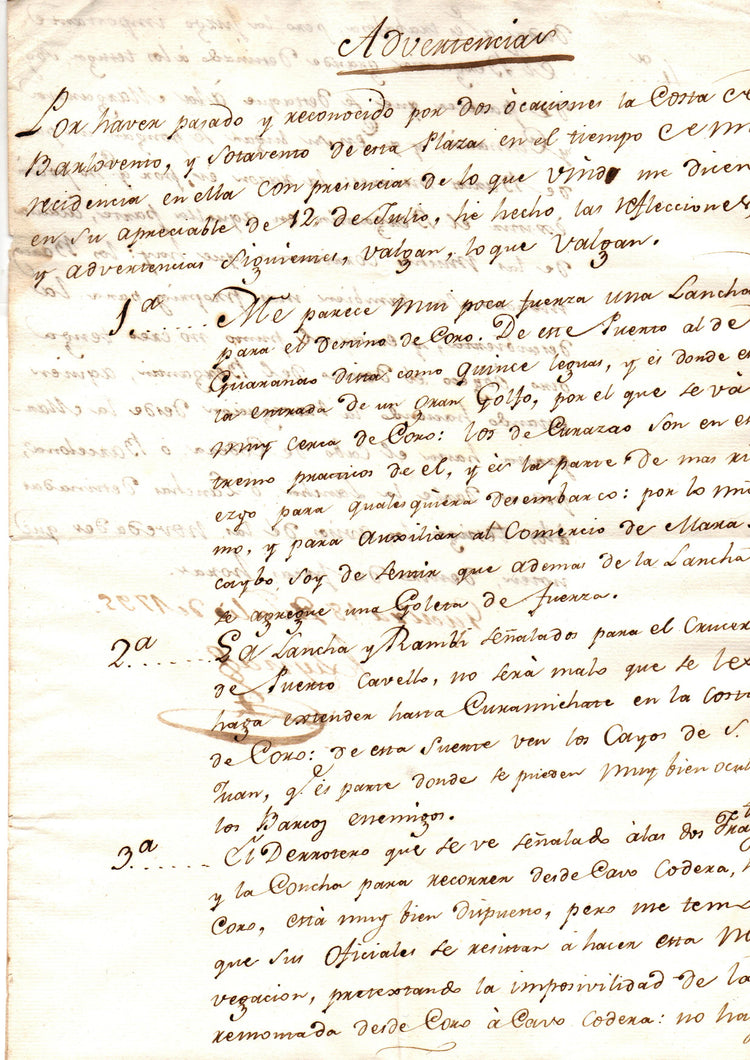 Advertencias
Por haver pasado y reconocido por dos òcaciones la Costa de
Barlovento, y Sotavento de esta Plaza en el tiempo de mi
recidencia en ella con presencia de lo que Vind me dicen
en su apreciable de 12 de Julio, hè hecho las reflecciones
y advertencias siguientes, valgan, lo que valgan.
1.a Me parece mui poca fuerza una Lancha
para el destino de Coro. De este Puerto al de
Guaranao dista como quince leguas, y ès donde es
la entrada de un gran Golfo, por el que se và
muy cerca de Coro: los de Curazao son en es
tremo practicos de el, y ès la parte de mas ri
ezgo para qualesquiera desembarco: por lo mis
mo, y para Auxiliar al Comercio de Mara
caybo soy de sentir que ademas de la Lancha
se agregue una Goleta de fuerza.
2.a La Lancha y señalados para el Crucer
de Puerto Cavello, no serà malo que se lex
haga extender hasta Curamichate en la costa
de Coro: de esta suerte ven los Cayos de S.
Juan, q.e ès parte donde se pueden muy bien ocul
los Barcos enemigos.
3.a El Derrotero que se ve señalado àlas dos
y la Concha para recorrer desde Cavo Codera,
Coro, està muy bien dispuesto, pero me tem
que sus Oficiales se resistan à hacer esta
vegacion, pretextando la imposivilidad de la
remontada desde Coro à Cavo Codera: no ha